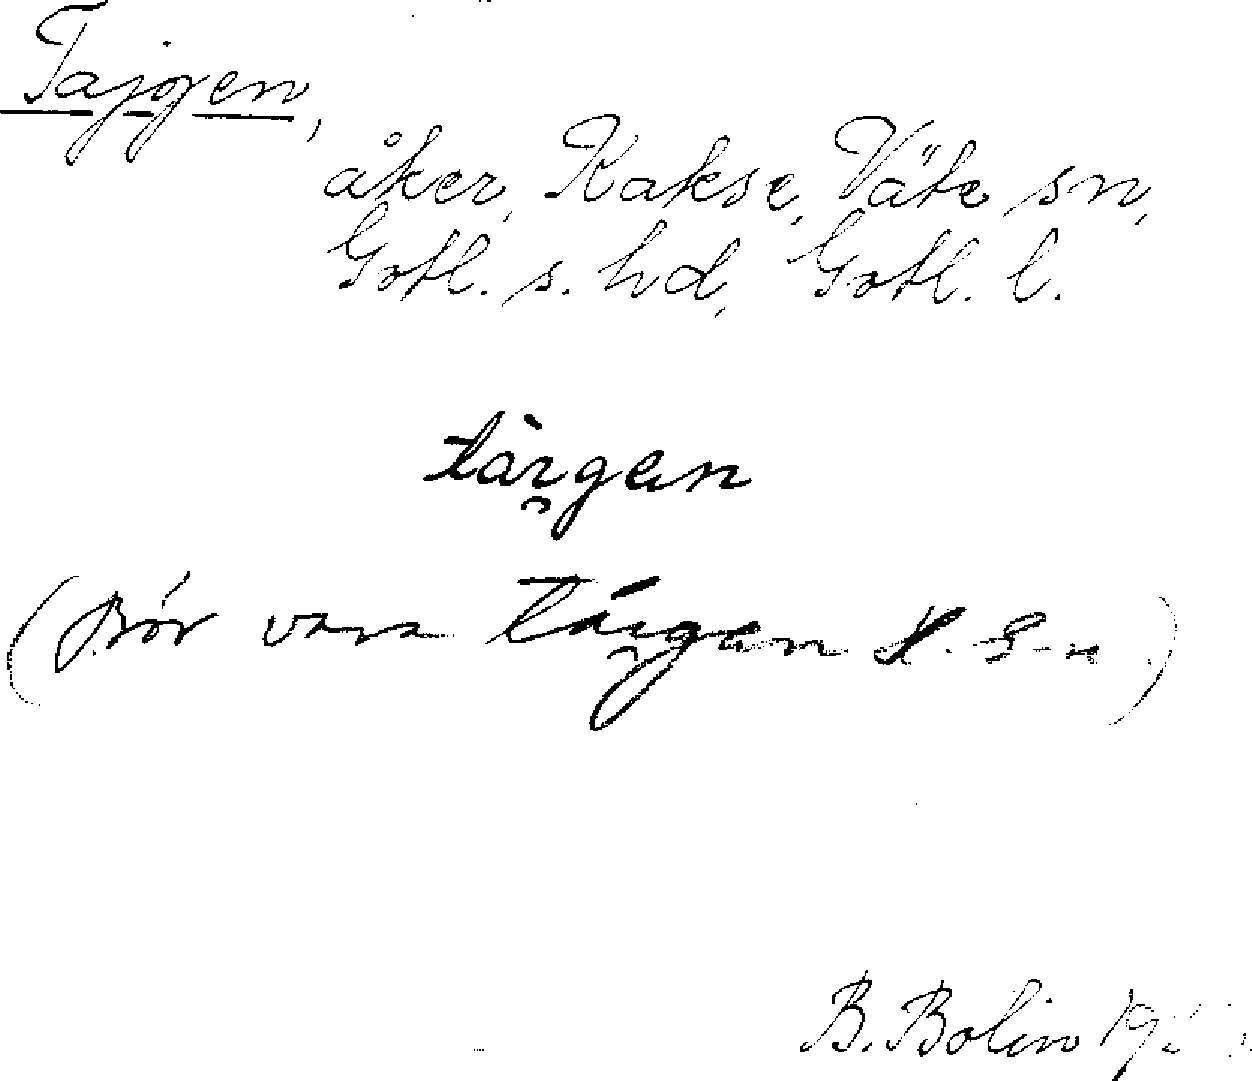 Tajgen,
åker, Kakse, Väte sn,
Gotl. s. hd, Gotl. l.
tàı̯gen
(Bör vara táı̯gen H. G-n.)
B. Bolin